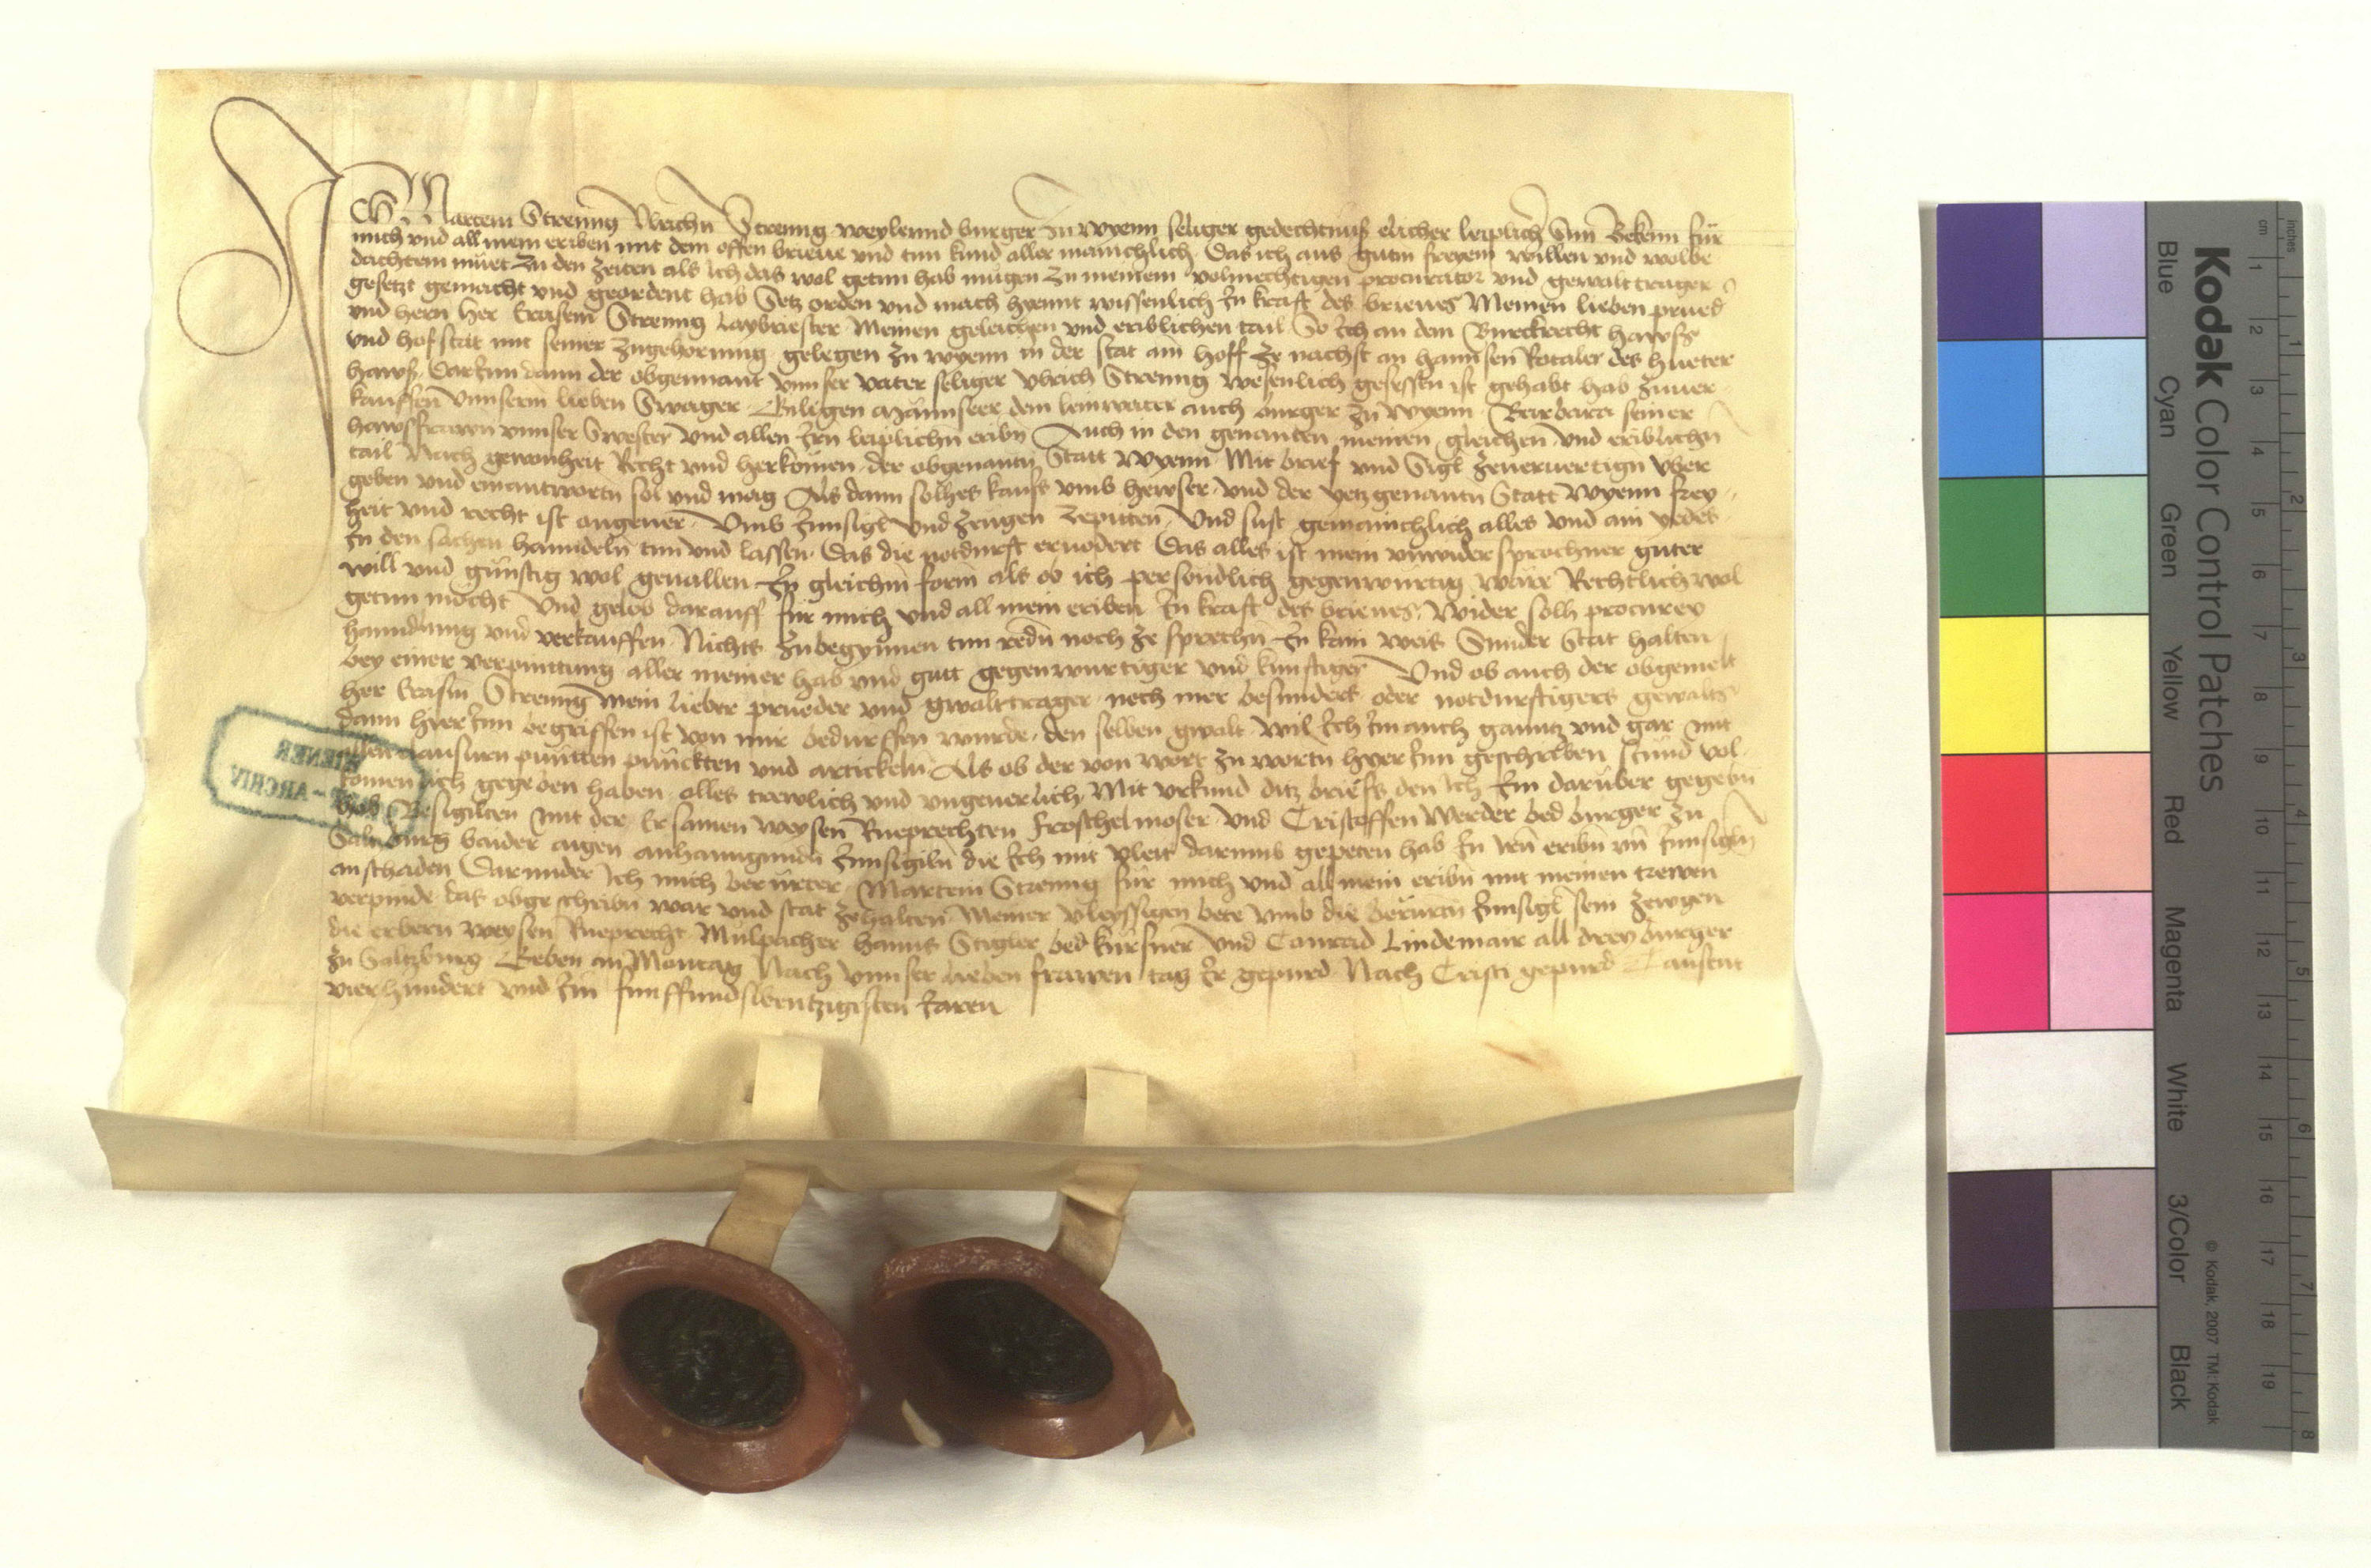 Ich Martein Strenng Ulrichn Strenng weylennd burger zu Wyenn seliger gedechtnuß elicher leiplich Sun Bekenn für
mich vnd all mein eriben mit dem offen brieue vnd tun kund aller mainchlich Das ich aus gutm freyem willen vnd wolbe
dachtem müet Zu den Zeiten als Ich das wol getun hab mügen Zu meinem volmechtigen procurator vnd gewalttrager
gesetzt gemacht vnd geordent hab Setz orden vnd mach hyemit wissenlich In kraft des brieues Meinen lieben prued
vnd hern her Erasem Strenng Laybriester Meinen geleichen vnd eriblichen tail So Ich an dem Burckrecht hawss
vnd hofstat mit seiner Zugehorung gelegen zu wyenn in der stat am hoff Ze nachst an hannsen Rotaler des hueter
hawß Dar Inn dann der obgennant vnnser vater seliger Vlrich Strenng wesenlich gesessen ist gehabt hab Zuuer
kauffen Vnnserm lieben Swager Giligen dem leinwater auch burger zu Wyenn Barbara seiner
hawsfrawn vnnser Swester vnd allen Irn leiplichn eribn Auch in den genanten meinen gleichen vnd eriblichn
tail Nach gewonheit Recht vnd herkomen der obgenantn Statt Wyenn Mit brief vnd Sigl Zeueruertign Vber
geben vnd einantwortn sol vnd mag Als dann solhes kaufs vmb hewser vnd der yetz genantn Statt Wyenn frey
heit vnd recht ist angeuer Vmb Innsigl vnd Zeugen Zepitten Vnd sust gemainchlich alles vnd ain yedes
In den sachen hanndeln tun vnd lassen Das die notdurft eruodert Das alles ist mein vnwidersprochner guter
will vnd günstig wol geuallen In gleichm form als ob ich persondlich gegenwurtig wäre Rechtlich wol
getun mocht Vnd gelob darauff für mich vnd all mein eriben In kraft des brieues Wider solh procurey
hanndlung vnd verkauffen Nichts Zubegynnen tun redn noch ze sprechn In kain weis Sunder Stat halten
bey einer verpinttung aller meiner hab vnd gutt gegenwurtiger vnd künftiger Vnd ob auch der obgemelt
her Erasm Strenng Mein lieber prueder vnd gwalttrager noch mer besunders oder notdurftigers gewalts
dann hyerInn begriffen ist von mir bedurffen wurde den selben gwalt wil Ich Im auch ganntz vnd gar mit
allen clausurn punten punckten vnd artickeln Als ob der von wort zu wortn hyerInn geschriben stünd Vol
komenlich gegeben haben alles trewlich vnd vngeuerlich Mit vrkund ditz briefs den Ich Im darüber gegebn
hab Besigilten mit der Ersamen weysen Rueprechten Froschelmoser vnd Cristoffen Werder bed burger zu
Saltzburg baider aigen anhanngundn Innsigiln die Ich mit vleit darumb gepeten hab In Irn eribn vn Innsigln
an schaden Darunder Ich mich berürter Martein Strenng für mich vnd all mein eribn mit meinen trewen
verpinde das obgeschribn war vnd stat Zehalten Meiner vleyssigen bete vmb die berurtn Innsigl sein Zewgen
die erbern weysen Rueprecht Mulpacher hanns Stigler bed kürsner vnd Conrad Lindemair all drey burger
zu Saltzburg Geben am Montag Nach vnnser lieben frawen tag Ir gepurd Nach Cristi gepurd Tausent
vierhundert vnd Im funffundsibentzigisten Jaren
WIENER
ARCHIV
Kodak Color Control Patches
Blue Cyan Green Yellow Red Magenta White 3/Color Black
© Kodak, 2007 TM: Kodak
cm 1 2 3 4 5 6 7 8 9 10 11 12 13 14 15 16 17 18 19
inches 1 2 3 4 5 6 7 8